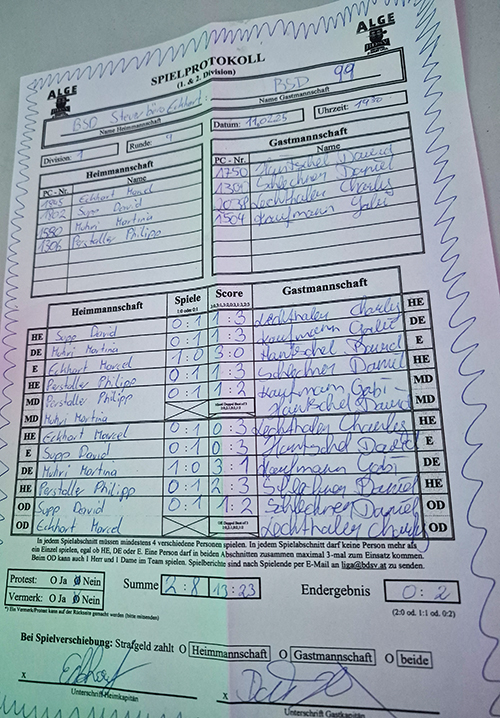 ALGE
ALGE
SPIELPROTOKOLL
(1. & 2. Division)
BSD Steuerbüro Eckhart : BSD 99
Name Heimmannschaft
Name Gastmannschaft
Division: 1
Runde: 4
Datum: 11.02.25
Uhrzeit: 19 00
Heimmannschaft
Gastmannschaft
PC - Nr. Name
PC - Nr. Name
Eckhart Marcel
1750 Hantschel David
1802 Supp David
Schlechner Daniel
1580 Muhri Martina
2038 Lechthaler Charles
1306 Perstaller Philipp
1504 Kaufmann Gabi
Heimmannschaft Spiele Score Gastmannschaft
1:0 oder 0:1
HE Supp David 0:1 1:3 Lechthaler Charles HE
DE Muhri Martina 0:1 1:3 Kaufmann Gabi DE
E Eckhart Marcel 1:0 3:0 Hantschel David E
HE Perstaller Philipp 0:1 1:3 Schlechner Daniel HE
MD Perstaller Philipp 0:1 1:2 Kaufmann Gabi - MD
MD Muhri Martina Hantschel David MD
HE Eckhart Marcel 0:1 0:3 Lechthaler Charles HE
E Supp David 0:1 0:3 Hantschel David E
DE Muhri Martina 1:0 3:1 Kaufmann Gabi DE
HE Perstaller Philipp 0:1 2:3 Schlechner Daniel HE
OD Supp David 0:1 1:2 Schlechner Daniel OD
OD Eckhart Marcel Lechthaler Charles OD
In jedem Spielabschnitt müssen mindestens 4 verschiedene Personen spielen. In jedem Spielabschnitt darf keine Person mehr als
ein Einzel spielen, egal ob HE, DE oder E. Eine Person darf in beiden Abschnitten zusammen maximal 3-mal zum Einsatz kommen.
Beim OD kann auch 1 Herr und 1 Dame im Team spielen. Spielberichte sind nach Spielende per E-Mail an liga@bdsv.at zu senden.
Protest: O Ja O Nein
Vermerk: O Ja O Nein
Summe 2:8 13:23 Endergebnis 0:2
(2:0 od. 1:1 od. 0:2)
*) Ein Vermerk/Protest kann auf der Rückseite gemacht werden (bitte ankreuzen)
Bei Spielverschiebung: Strafgeld zahlt O Heimmannschaft O Gastmannschaft O beide
x
x
Unterschrift Heimkapitän
Unterschrift Gastkapitän